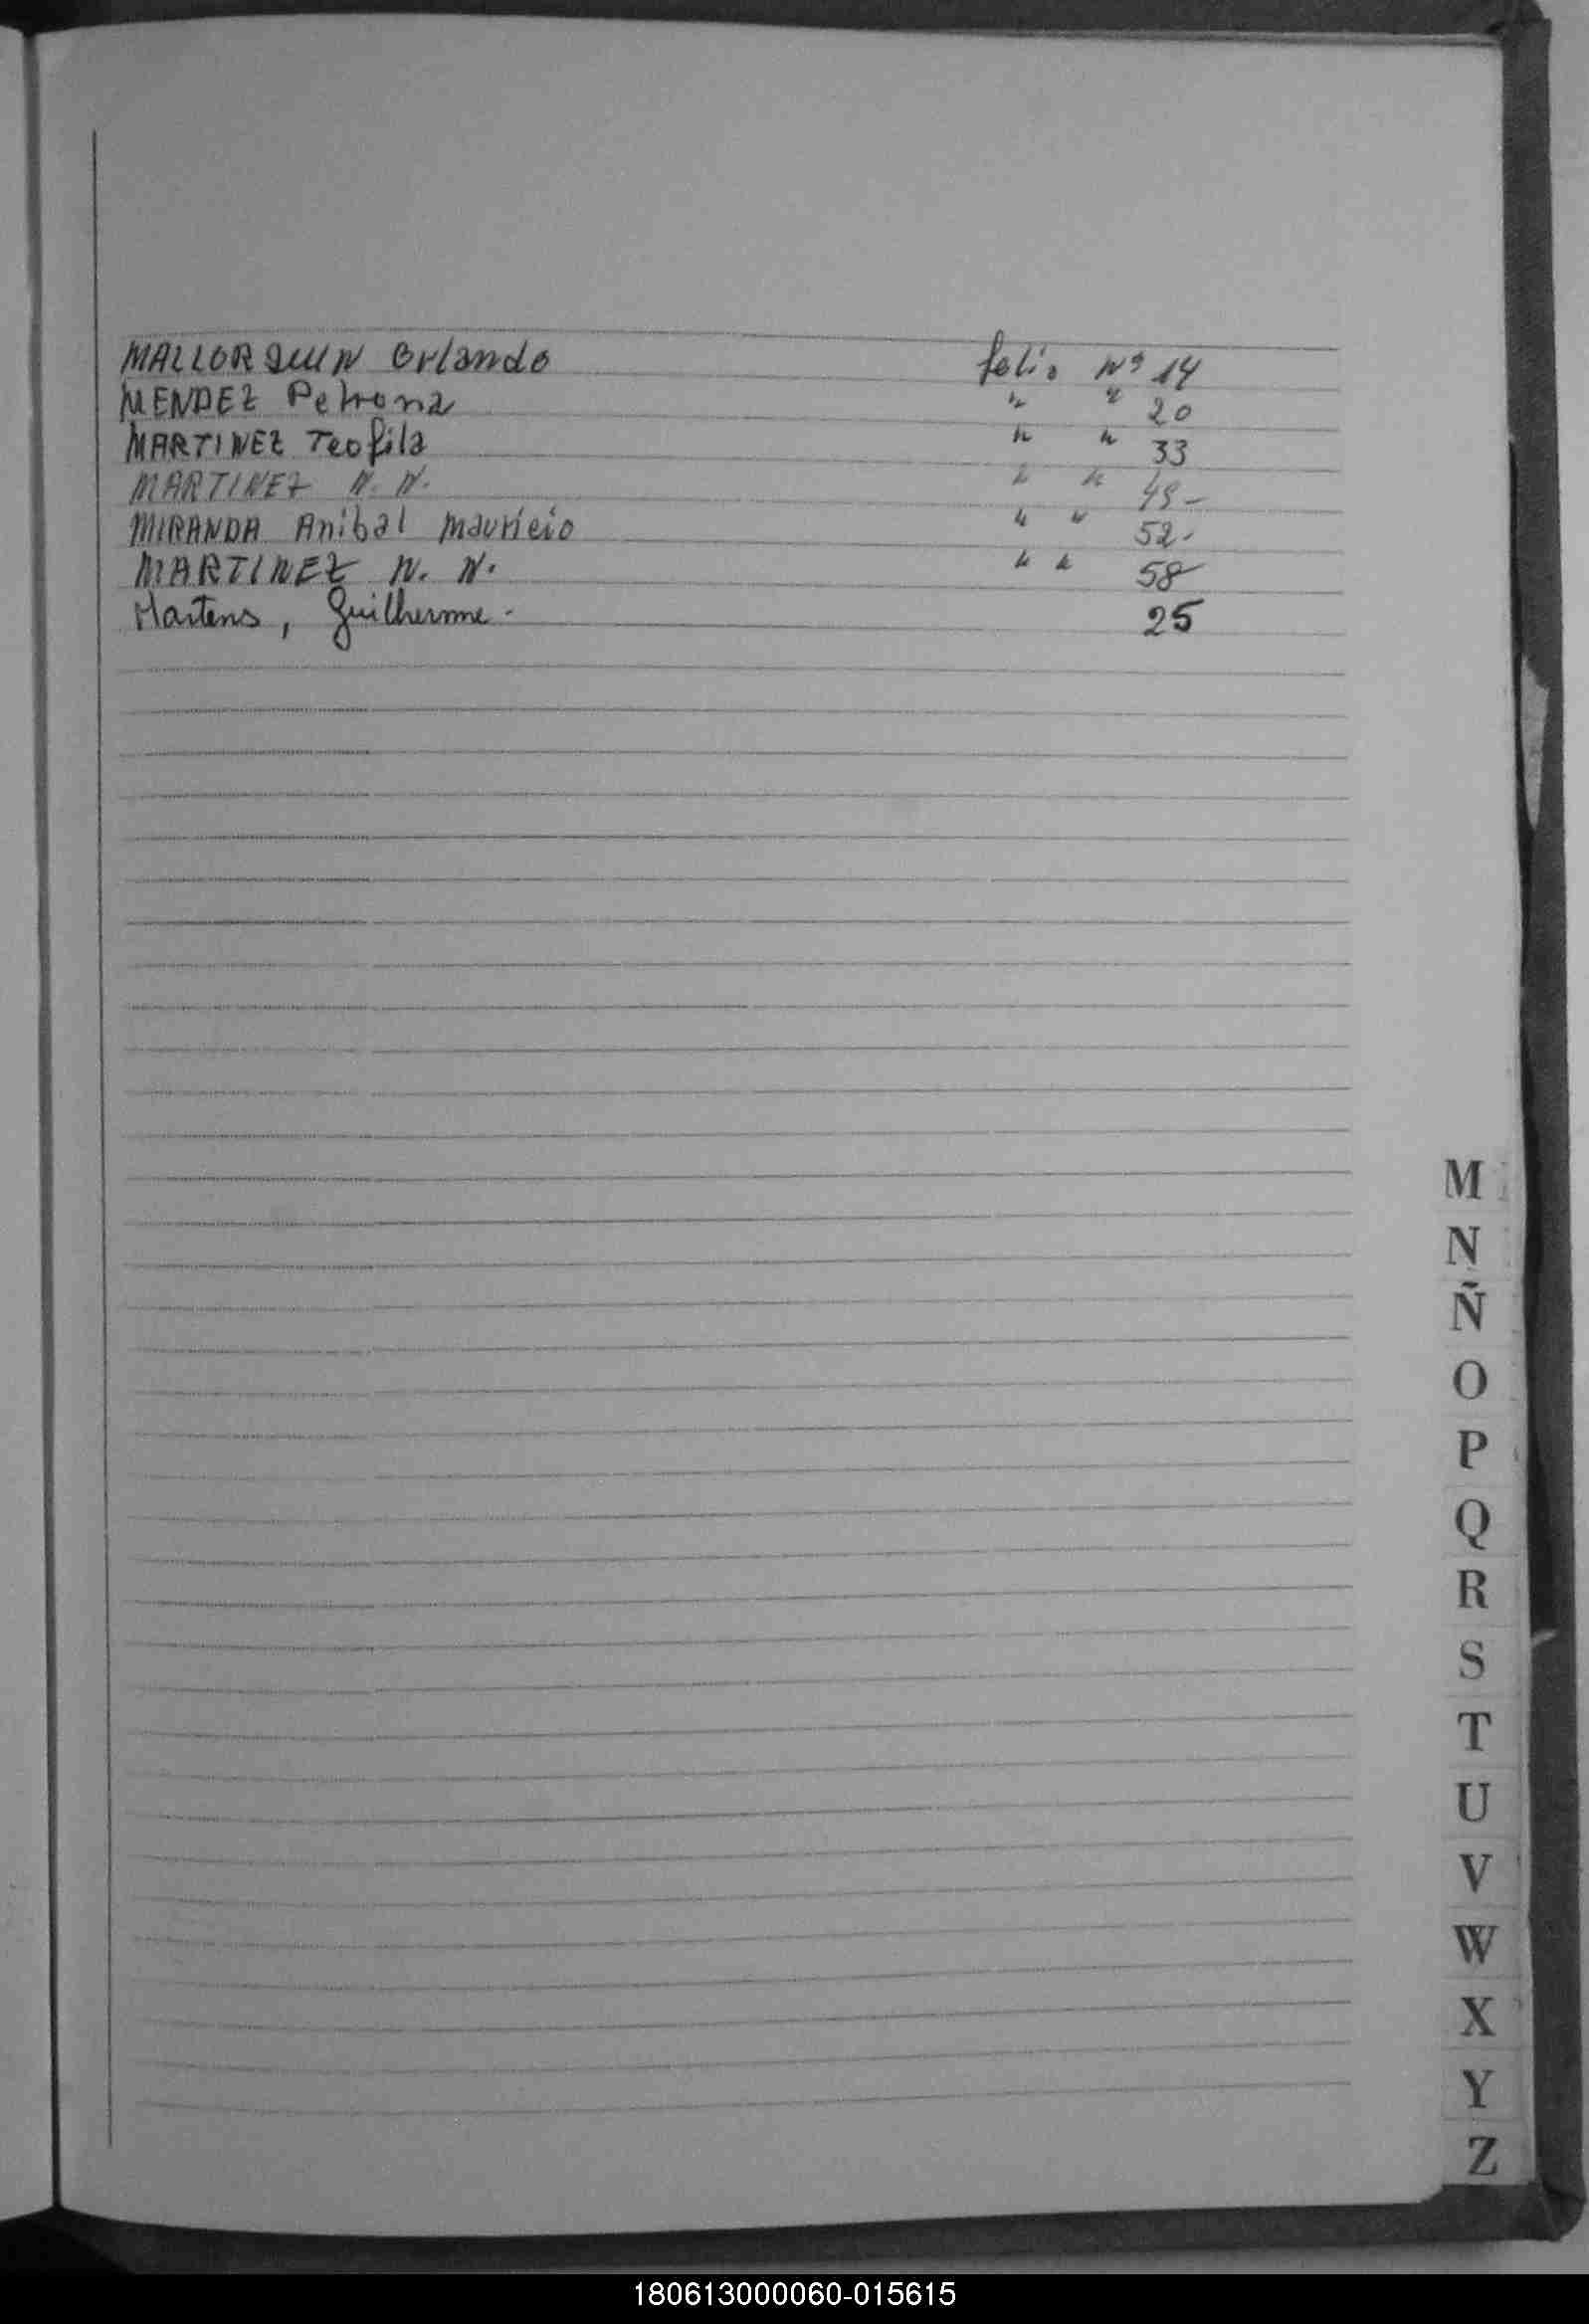 MALLORQUIN Orlando folio Nº 14
MENDEZ Petrona " " 20
MARTINEZ Teofila " " 33
MARTINEZ N. N. " " 49-
MIRANDA Anibal Mauricio " " 52-
MARTINEZ N. N. " " 58
Martens, Guilherme - 25
M
N
Ñ
O
P
Q
R
S
T
U
V
W
X
Y
Z
180613000060-015615